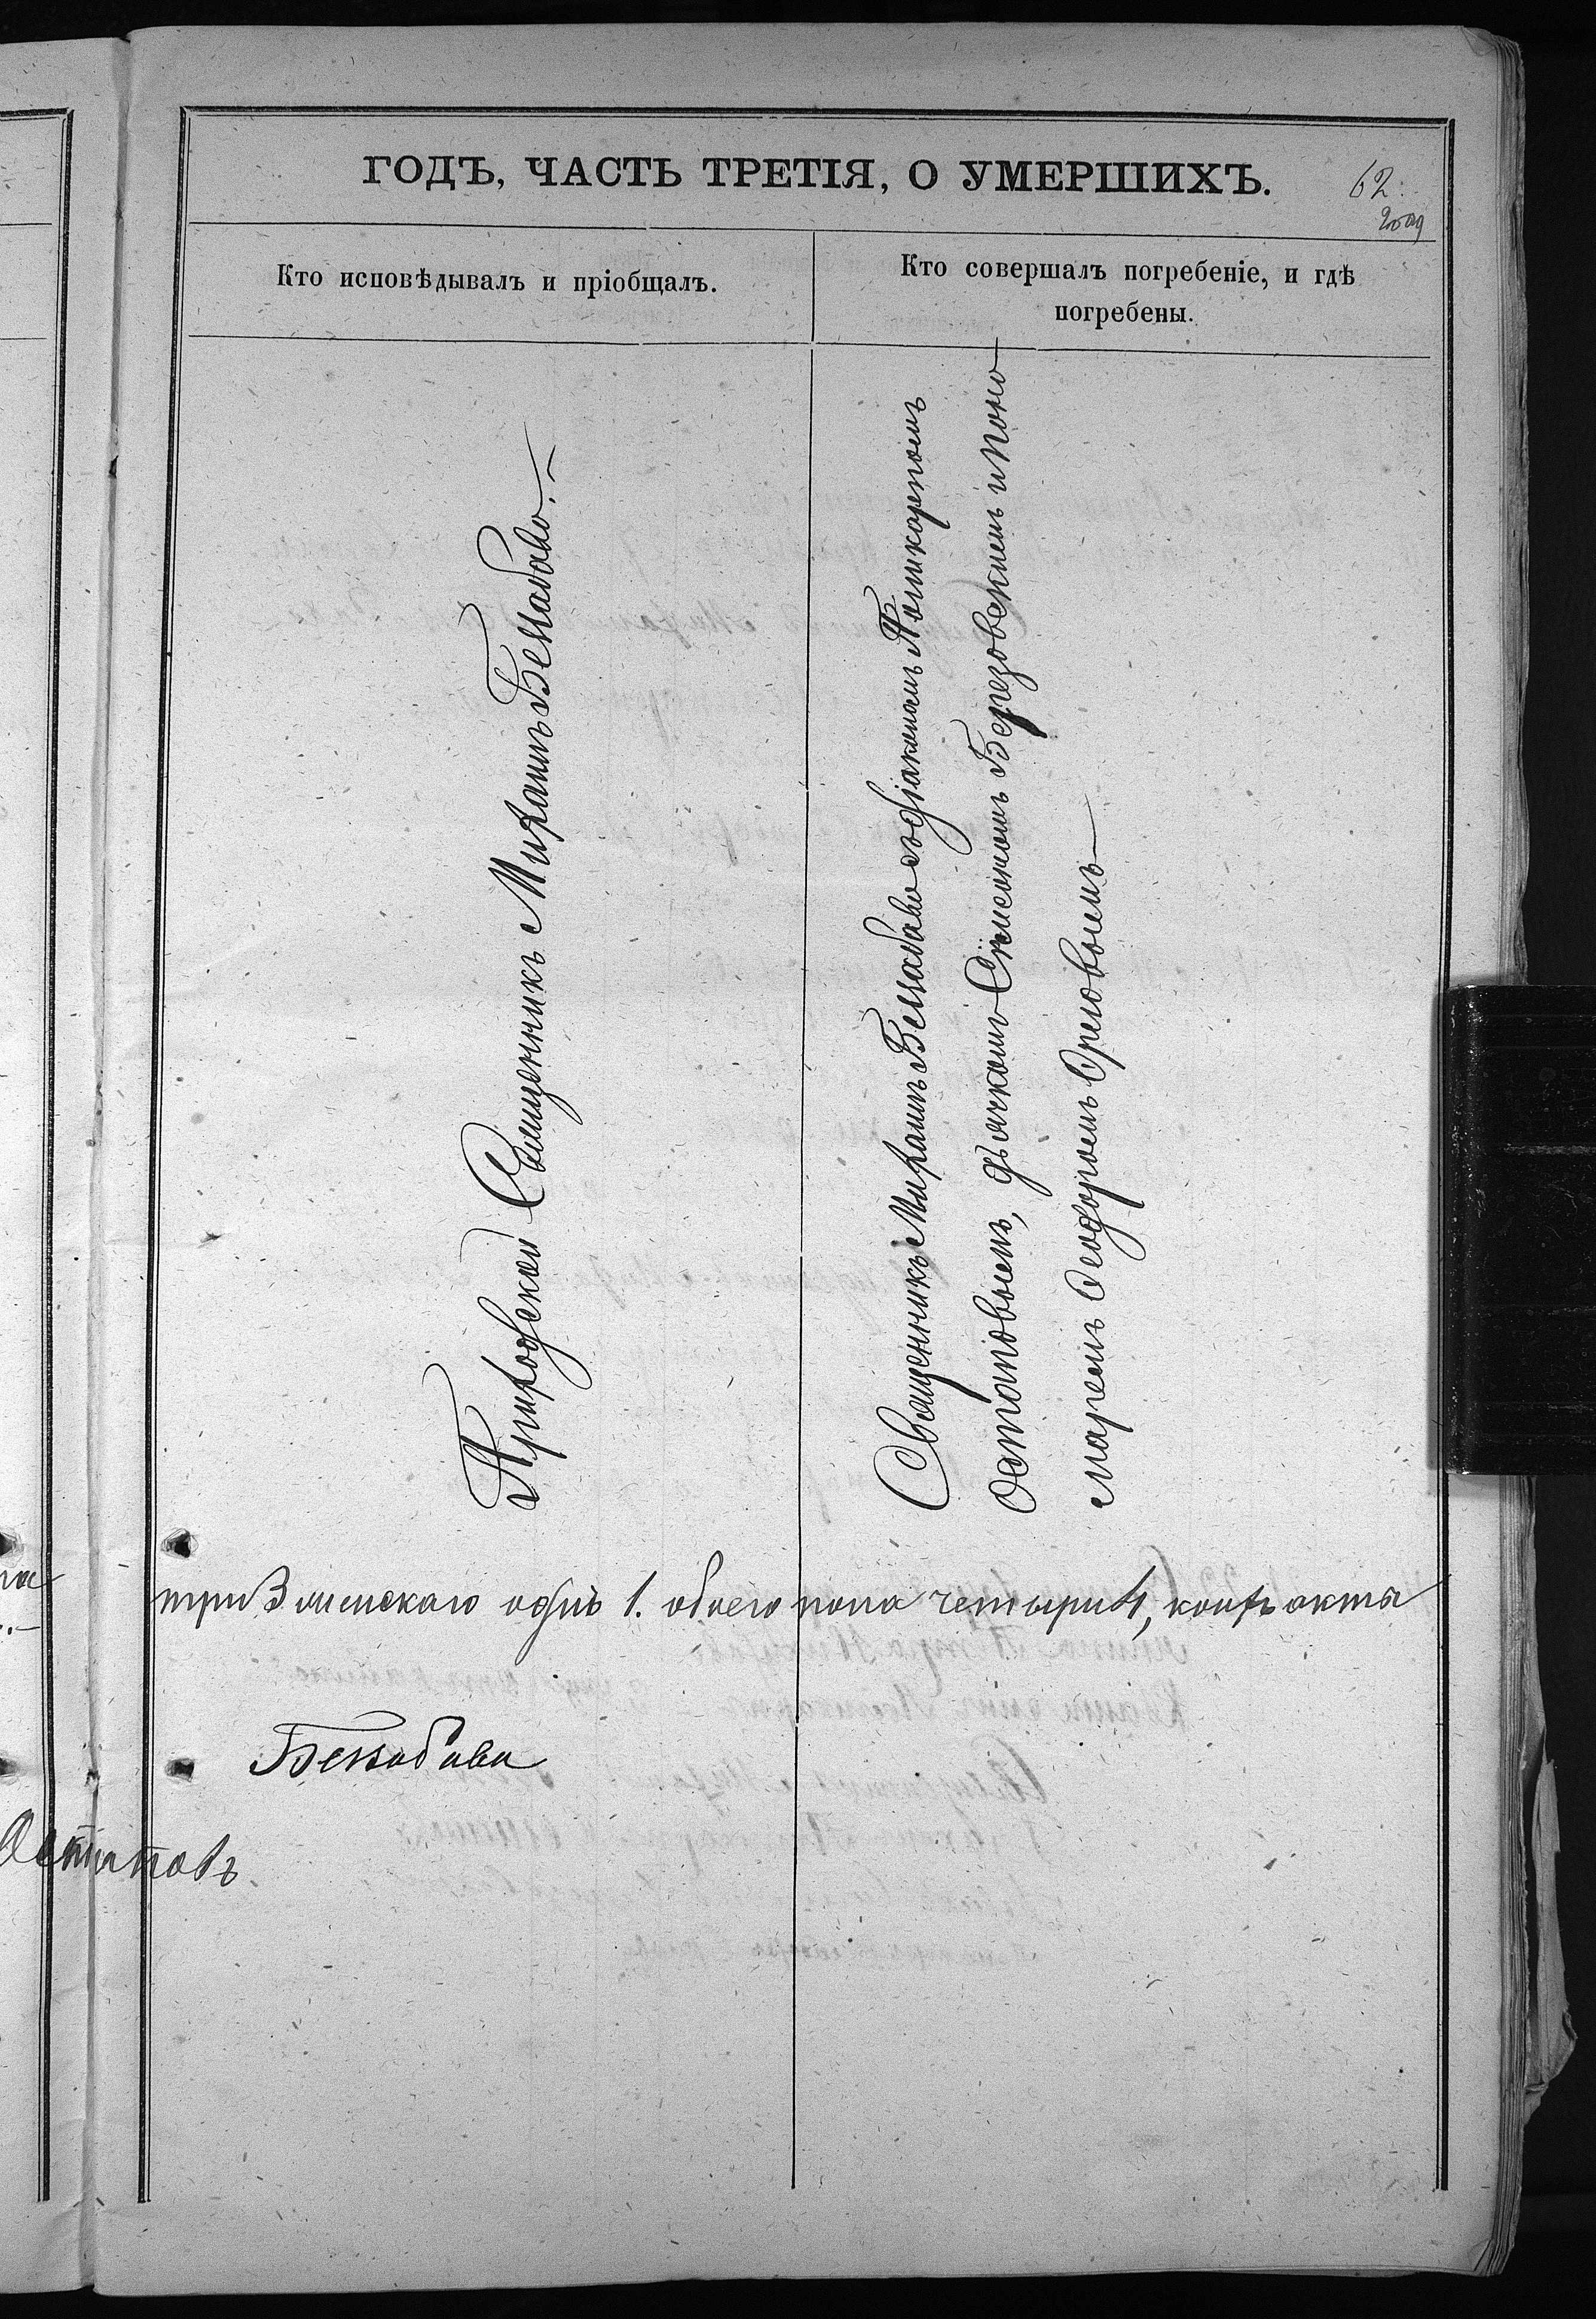 ГОДЪ, ЧАСТЬ ТРЕТІЯ, О УМЕРШИХЪ.
62
Кто исповѣдывалъ и пріобщалъ.
Кто совершалъ погребеніе, и гдѣ
погребены.
Приходскій Священникъ Михаилъ
Священникъ Михаилъ съ діакономъ Поликарпомъ
Остаповымъ, дьячкомъ Симеономъ Березовскимъ и поно-
маремъ Ѳеодоромъ Орловымъ
три 3 женскаго одна 1. обоего пола четыри 4, коихъ акты
Остаповъ